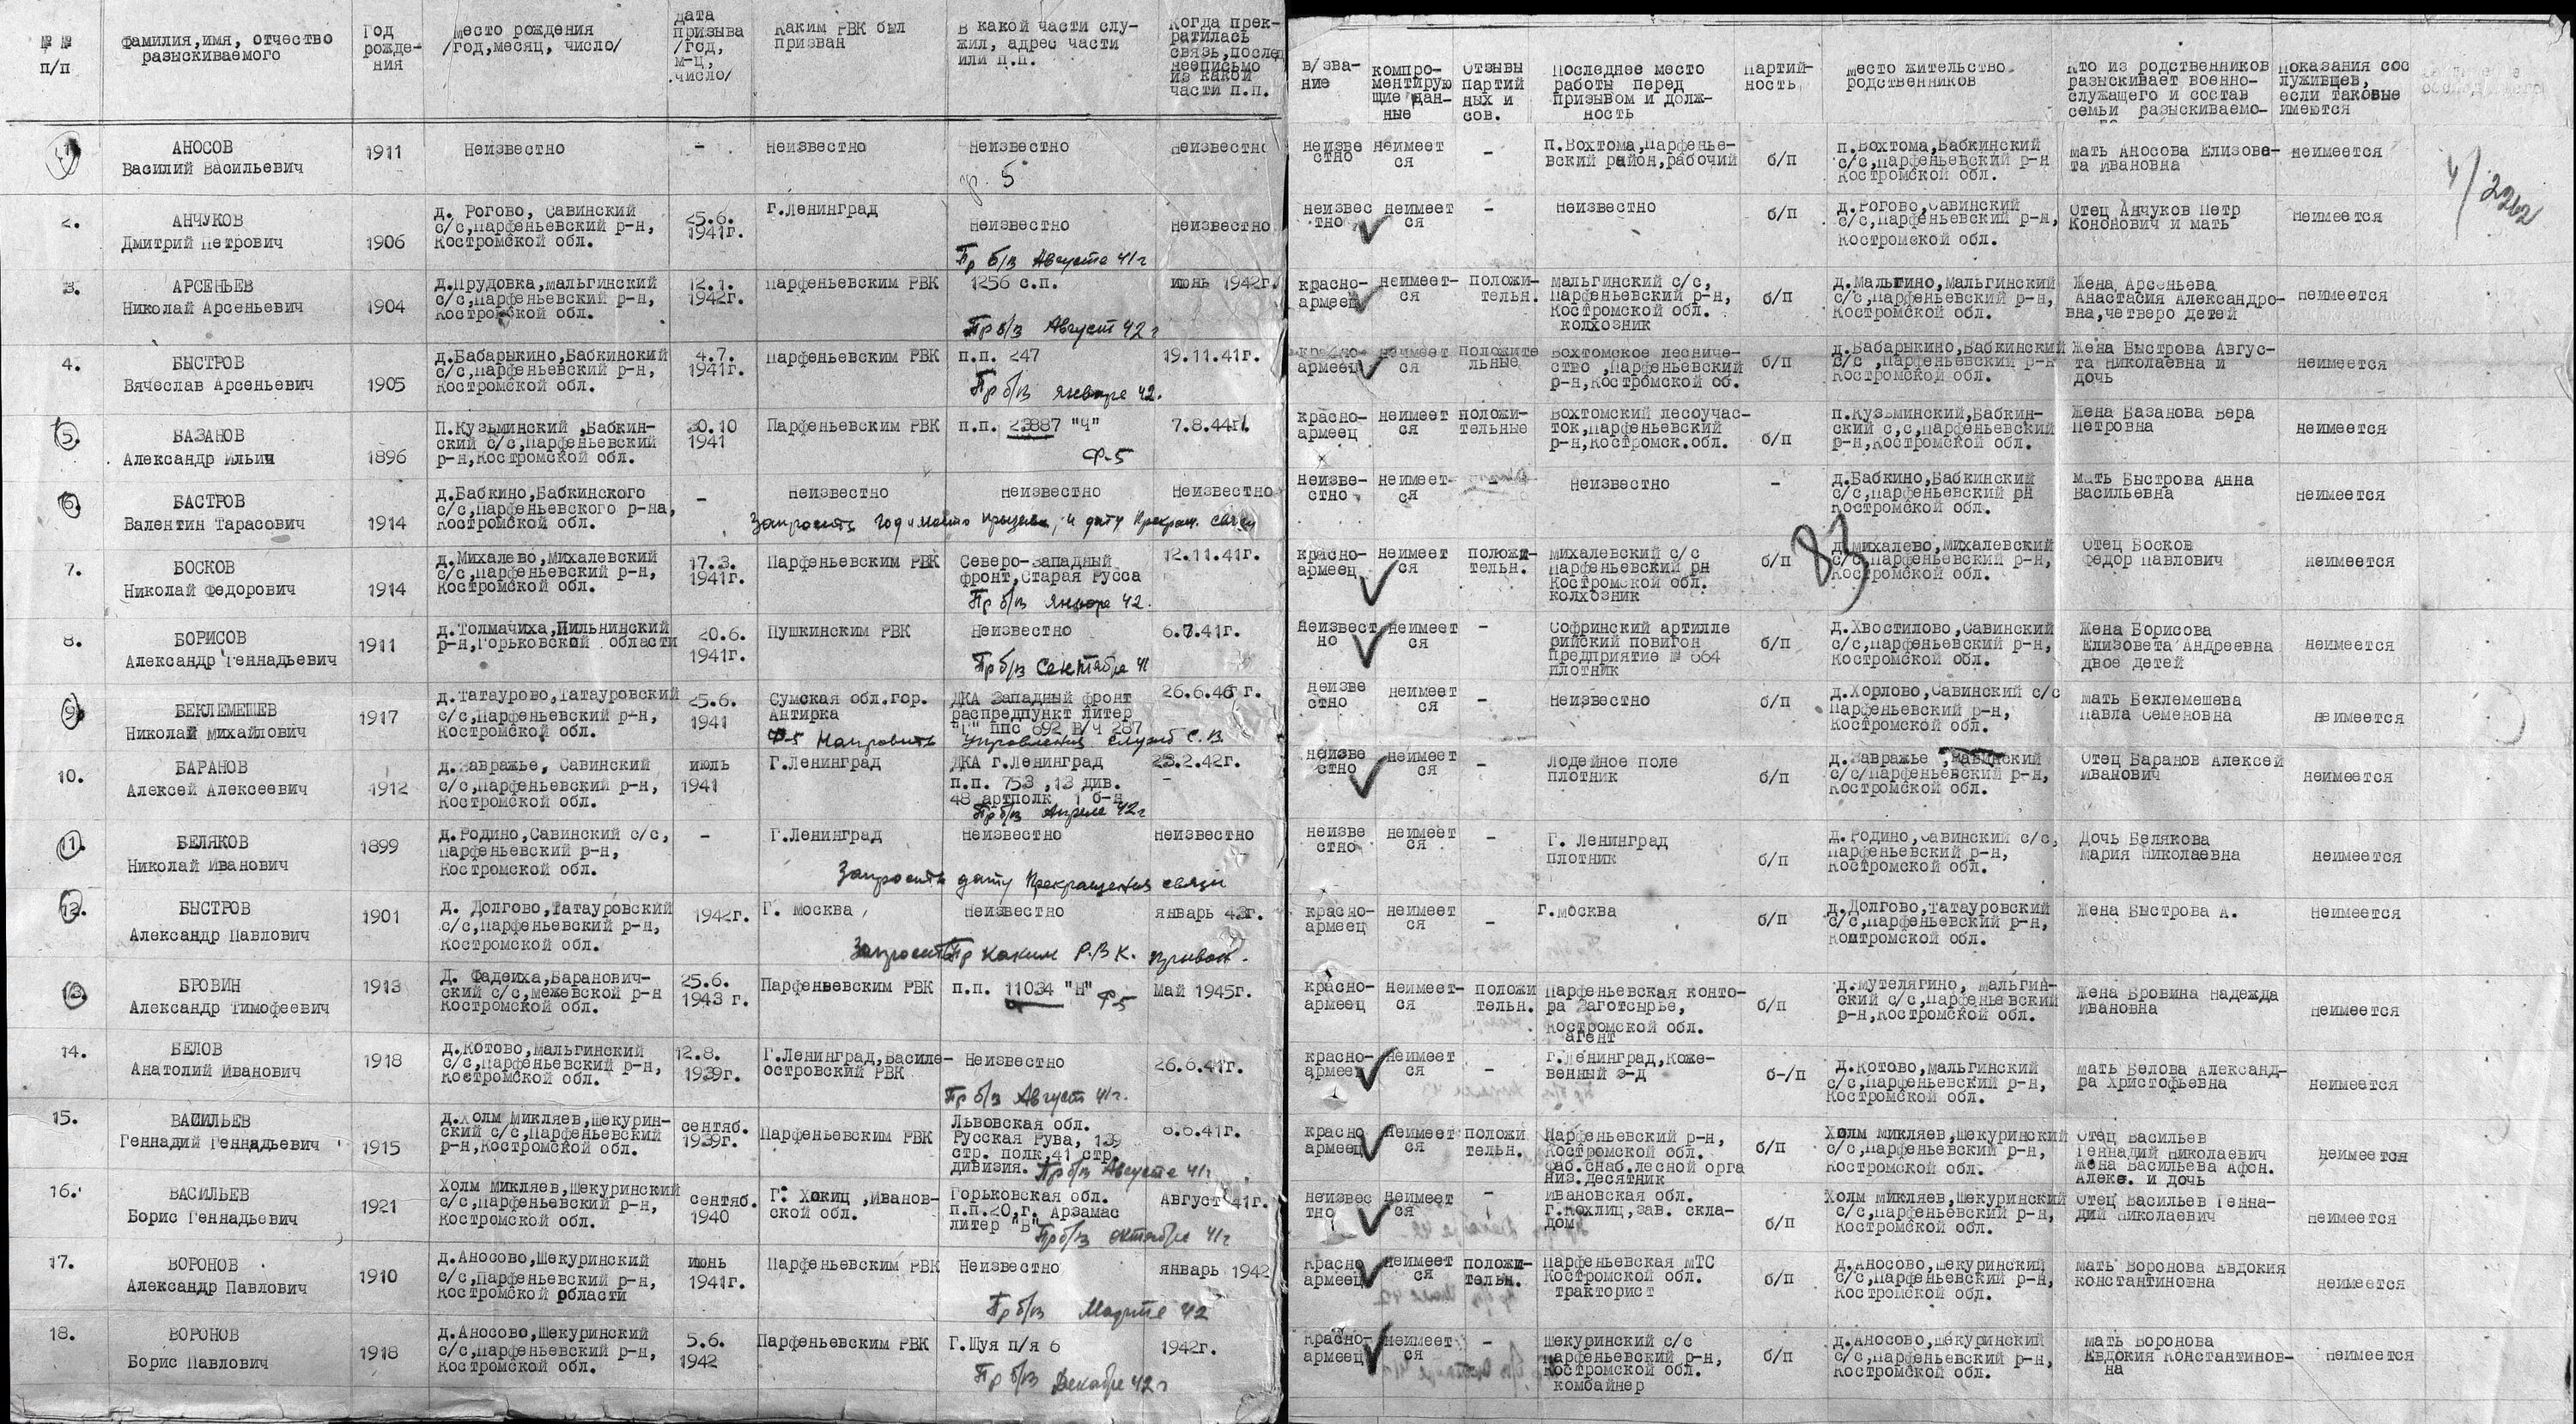 № № п/п
Фамилия,имя, отчество разыскиваемого
Год рожде-ния
Место рождения /год,месяц, число/
дата призыва /год, м-ц, число/
Каким РВК был призван
В какой части слу-жил, адрес части или п.п.
Когда прек-ратилась связь,послед нееписьмо из какой части п.п.
в/зва-ние
компро-ментирую щие дан-ные
Отзывы партий ных и сов.
Последнее место работы перед призывом и долж-ность
Партий-ность
Место жительство родственников
Кто из родственников разыскивает военно-служащего и состав семьи разыскиваемо-го
Показания сос луживцев, если таковые имеются
1. АНОСОВ Василий Васильевич 1911 Неизвестно - Неизвестно Неизвестно Неизвестно неизве стно неимеет ся - п.Вохтома,Парфенье-вский район,рабочий б/п п.Вохтома,Бабкинский с/с,Парфеньевский р-н Костромской обл. мать Аносова Елизове-та Ивановна неимеется
ф. 5
4/2262
2. АНЧУКОВ Дмитрий Петрович 1906 д. Рогово, Савинский с/с,Парфеньевский р-н, Костромской обл. 25.6. 1941г. г.Ленинград Неизвестно Неизвестно неизвес тно неимеет ся - Неизвестно б/п д.Рогово,Савинский с/с,Парфеньевский р-н, Костромской обл. Отец Анчуков Петр Кононович и мать неимеется
Пр б/в Августе 41г
3. АРСЕНЬЕВ Николай Арсеньевич 1904 д.Прудовка,Мальгинский с/с,Парфеньевский р-н, Костромской обл. 12.1. 1942г. Парфеньевским РВК 1256 с.п. июнь 1942г. красно-армеец неимеет-ся положи-тельн. Мальгинский с/с, Парфеньевский р-н, Костромской обл. колхозник б/п д.Мальгино,Мальгинский с/с,Парфеньевский р-н, Костромской обл. Жена Арсеньева Анастасия Александро-вна,четверо детей неимеется
Пр б/в Август 42 г
4. БЫСТРОВ Вячеслав Арсеньевич 1905 д.Бабарыкино,Бабкинский с/с,Парфеньевский р-н, Костромской обл. 4.7. 1941г. Парфеньевским РВК п.п. 247 19.11.41г. красно-армеец неимеет ся положите льные Вохтомское лесниче-ство ,Парфеньевский р-н,Костромской об. б/п д.Бабарыкино,Бабкинский с/с ,Парфеньевский р-н Костромской обл. Жена Быстрова Авгус-та Николаевна и дочь неимеется
Пр б/в январе 42.
5. БАЗАНОВ Александр Ильич 1896 П.Кузьминский ,Бабкин-ский с/с,Парфеньевский р-н,Костромской обл. 30.10 1941 Парфеньевским РВК п.п. 23887 "Ч" 7.8.44г. красно-армеец неимеет ся положи-тельные Вохтомский лесоучас-ток,Парфеньевский р-н,Костромск.обл. б/п п.Кузьминский,Бабкин-ский с,с,Парфеньевский р-н,Костромской обл. Жена Базанова Вера Петровна неимеется
Ф-5
6. БАСТРОВ Валентин Тарасович 1914 д.Бабкино,Бабкинского с/с,Парфеньевского р-на, Костромской обл. - Неизвестно Неизвестно Неизвестно неизве-стно неимеет-ся - Неизвестно - д.Бабкино,Бабкинский с/с,Парфеньевский рн Костромской обл. мать Быстрова Анна Васильевна неимеется
Запросить год и место призыва, и дату прекращ. связи
83
7. БОСКОВ Николай Федорович 1914 д.Михалево,Михалевский с/с,Парфеньевский р-н, Костромской обл. 17.3. 1941г. Парфеньевским РВК Северо-Западный фронт,Старая Русса 12.11.41г. красно-армеец неимеет ся положи-тельн. Михалевский с/с Парфеньевский рн Костромской обл. колхозник б/п д.Михалево,Михалевский с/с,Парфеньевский р-н, Костромской обл. Отец Босков Федор Павлович неимеется
Пр б/в январе 42.
8. БОРИСОВ Александр Геннадьевич 1911 д.Толмачиха,Пильнинский р-н,Горьковской области 20.6. 1941г. Пушкинским РВК Неизвестно 6.7.41г. Неизвест но неимеет ся - Софринский артилле рийский повигон Предприятие № 664 плотник б/п Д.Хвостилово,Савинский с/с,Парфеньевский р-н, Костромской обл. Жена Борисова Елизовета Андреевна двое детей неимеется
Пр б/в Сентябре 41
9. БЕКЛЕМЕШЕВ Николай Михайлович 1917 д.Татаурово,Татауровский с/с,Парфеньевский р-н, Костромской обл. 25.6. 1941 Сумская обл.гор. Антирка ДКА Западный фронт распредпункт литер "Г" ппс 692 В/ч 287 26.6.46 г. неизве стно неимеет ся - Неизвестно б/п д.Хорлово,Савинский с/с Парфеньевский р-н, Костромской обл. мать Беклемешева Павла Семеновна неимеется
Ф-5 Направить управления служб С.В.
10. БАРАНОВ Алексей Алексеевич 1912 д.Завражье, Савинский с/с,Парфеньевский р-н, Костромской обл. июль 1941 Г.Ленинград ДКА г.Ленинград п.п. 753 ,13 див. 48 артполк 1 б-н 23.2.42г. неизве стно неимеет ся - Лодейное поле плотник б/п д.Завражье ,Савинский с/с/Парфеньевский р-н, Костромской обл. Отец Баранов Алексей Иванович неимеется
Пр б/в Апреле 42г
11. БЕЛЯКОВ Николай Иванович 1899 д.Родино,Савинский с/с, Парфеньевский р-н, Костромской обл. - Г.Ленинград Неизвестно Неизвестно неизве стно неимеет ся - Г. Ленинград плотник б/п д.Родино,Савинский с/с, Парфеньевский р-н, Костромской обл. Дочь Белякова Мария Николаевна неимеется
Запросить дату прекращения связи
12. БЫСТРОВ Александр Павлович 1901 д. Долгово,Татауровский с/с,Парфеньевский р-н, Костромской обл. 1942г. Г. Москва Неизвестно январь 43г. красно-армеец неимеет ся - г.Москва б/п д.Долгово,Татауровский с/с,Парфеньевский р-н, Контромской обл. Жена Быстрова А. Неимеется
Запросить каким Р.В.К. призван.
13. БРОВИН Александр Тимофеевич 1913 Д. Фадеиха,Баранович-ский с/с,Межевской р-н Костромской обл. 25.6. 1943 г. Парфеньевским РВК п.п. 11034 "Н" Май 1945г. красно-армеец неимеет-ся положи тельн. Парфеньевская конто-ра Заготсырье, Костромской обл. агент б/п д.Мутелягино, Мальгин-ский с/с,Парфеньевский р-н,Костромской обл. Жена Бровина Надежда Ивановна неимеется
Ф-5
14. БЕЛОВ Анатолий Иванович 1918 д.Котово,Мальгинский с/с,Парфеньевский р-н, Костромской обл. 12.8. 1939г. Г.Ленинград,Василе-островский РВК Неизвестно 26.6.41г. красно-армеец неимеет ся - г.Ленинград,Коже-венный з-д б-/п Д.Котово,Мальгинский с/с,Парфеньевский р-н, Костромской обл. мать Белова Александ-ра Христофьевна неимеется
Пр б/в Август 41г.
15. ВАСИЛЬЕВ Геннадий Геннадьевич 1915 д.Холм Микляев,Шекурин-ский с/с,Парфеньевский р-н,Костромской обл. сентяб. 1939г. Парфеньевским РВК Львовская обл. Русская Рува, 139 стр. полк,41 стр. дивизия. 6.6.41г. красно армеец неимеет ся положи тельн. Парфеньевский р-н, Костромской обл. Раб.снаб.лесной орга низ.десятник б/п Холм Микляев,Шекуринский с/с,Парфеньевский р-н, Костромской обл. Отец Васильев Геннадий Николаевич Жена Васильева Афон. Алекс. и дочь неимеется
Пр б/в Августе 41г
16. ВАСИЛЬЕВ Борис Геннадьевич 1921 Холм Микляев,Шекуринский с/с,Парфеньевский р-н, Костромской обл. сентяб. 1940 Г. Хокиц ,Иванов-ской обл. Горьковская обл. п.п.20,г. Арзамас литер "В" Август 41г. неизвес тно неимеет ся - Ивановская обл. Г.Кохлиц,зав. скла-дом б/п Холм Микляев,Шекуринский с/с,Парфеньевский р-н, Костромской обл. Отец Васильев Генна-дий Николаевич неимеется
Пр б/в октябре 41г
17. ВОРОНОВ Александр Павлович 1910 д.Аносово,Шекуринский с/с,Парфеньевский р-н, Костромской области июнь 1941г. Парфеньевским РВК Неизвестно январь 1942 Красно армеец неимеет ся положи-тельн. Парфеньевская МТС Костромской обл. тракторист б/п д.Аносово,Шекуринский с/с,Парфеньевский р-н, Костромской обл. мать Воронова Евдокия Константиновна неимеется
Пр б/в Марте 42
18. ВОРОНОВ Борис Павлович 1918 д.Аносово,Шекуринский с/с,Парфеньевский р-н, Костромской обл. 5.6. 1942 Парфеньевским РВК Г.Шуя п/я 6 1942г. Красно-армеец неимеет ся - Шекуринский с/с Парфеньевский р-н, Костромской обл. комбайнер б/п д.Аносово,Шекуринский с/с,Парфеньевский р-н, Костромской обл. мать Воронова Евдокия Константинов-на неимеется
Пр б/в Декабре 42г